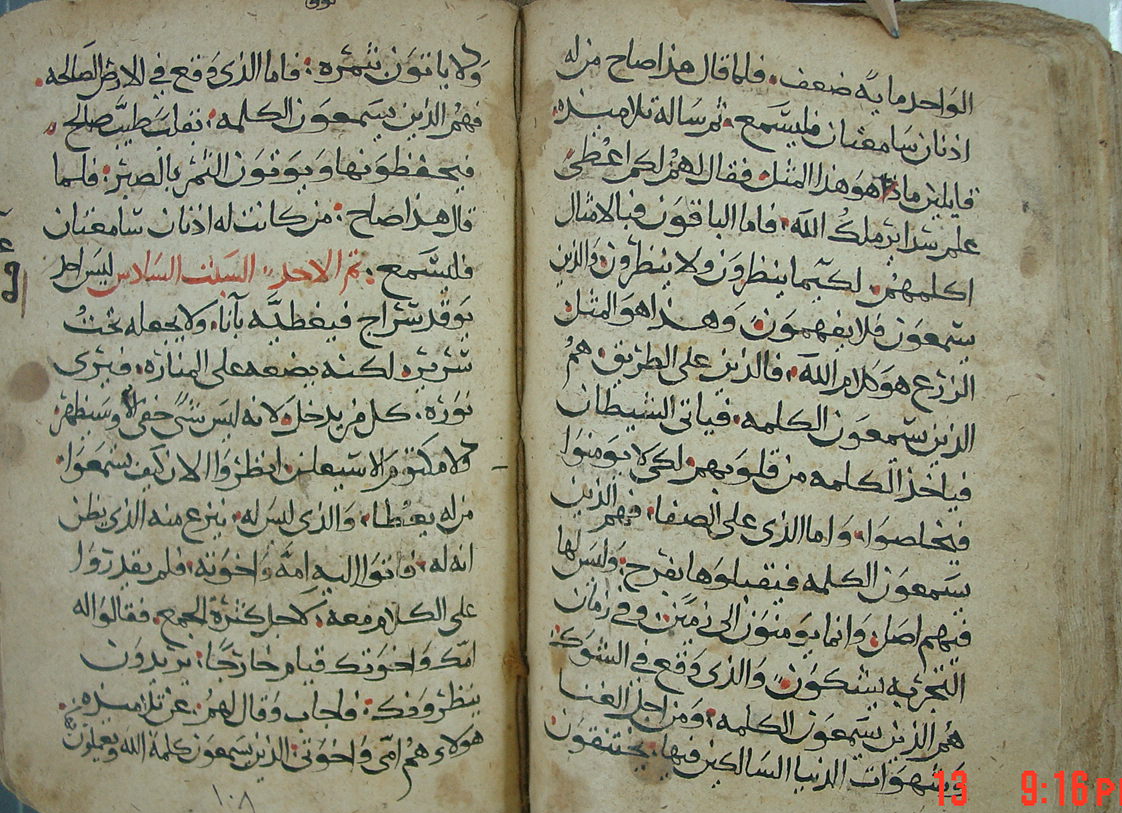 الواحد ماية ضعف. فلما قال هذا صاح من له
اذنان سامعتان فليسمع. ثم ساله تلاميذه
قايلين ماذا هو هذا المثل. فقال لهم لكم اعطى
علم سراير ملك الله. فاما الباقون فبالامثال
اكلمهم. لكيما ينظرون ولا ينظرون والذين
يسمعون فلا يفهمون. وهذا هو المثل
الزرع هو كلام الله. فالذين على الطريق هم
الذين يسمعون الكلمه. فياتى الشيطان
فياخذ الكلمه من قلوبهم. لكى لا يومنوا
فيخلصوا. واما الذى على الصفا. فهم الذين
يسمعون الكلمه فيتقبلوها بفرح. وليس لها
فيهم اصل. وانما يومنون الى زمن. وفى زمان
التجربه يشكون. والذى وقع فى الشوك.
هم الذين يسمعون الكلمه. ومن اجل الغنا
وشهوات الدنيا السالكين فيها. يختنقون
ولا ياتون بثمره. فاما الذى وقع فى الارض الصالحه.
فهم الذين يسمعون الكلمه. بقلب طيب صالح
فيحفظونها ويوتون الثمر بالصبر. فلما
قال هذا صاح. من كانت له اذنان سامعتان
فليسمع. تم الاحد السبت السادس ليس احد
يوقد سراج فيغطيه بآنا. ولا يجعله تحت
سريره. لكنه يضعه على المناره. فيرى
نوره. كل من يدخل لانه ليس شى خفى الا وسيظهر.
ولا مكتوم الا سيعلن. انظروا الان كيف تسمعوا.
من له يعطا. والذى ليس له. ينزع منه الذى يظن
انه له. فاتوا اليه امه واخوته. فلم يقدروا
على الكلام معه. لاجل كثرة الجمع. فقالوا له
امك واخوتك قيام خارجا. يريدون
ينظرونك. فاجاب وقال لهم. عن تلاميذه.
هولاء هم امى واخوتى. الذين يسمعون كلمة الله ويعملون
١٠٨
13 9:16 P